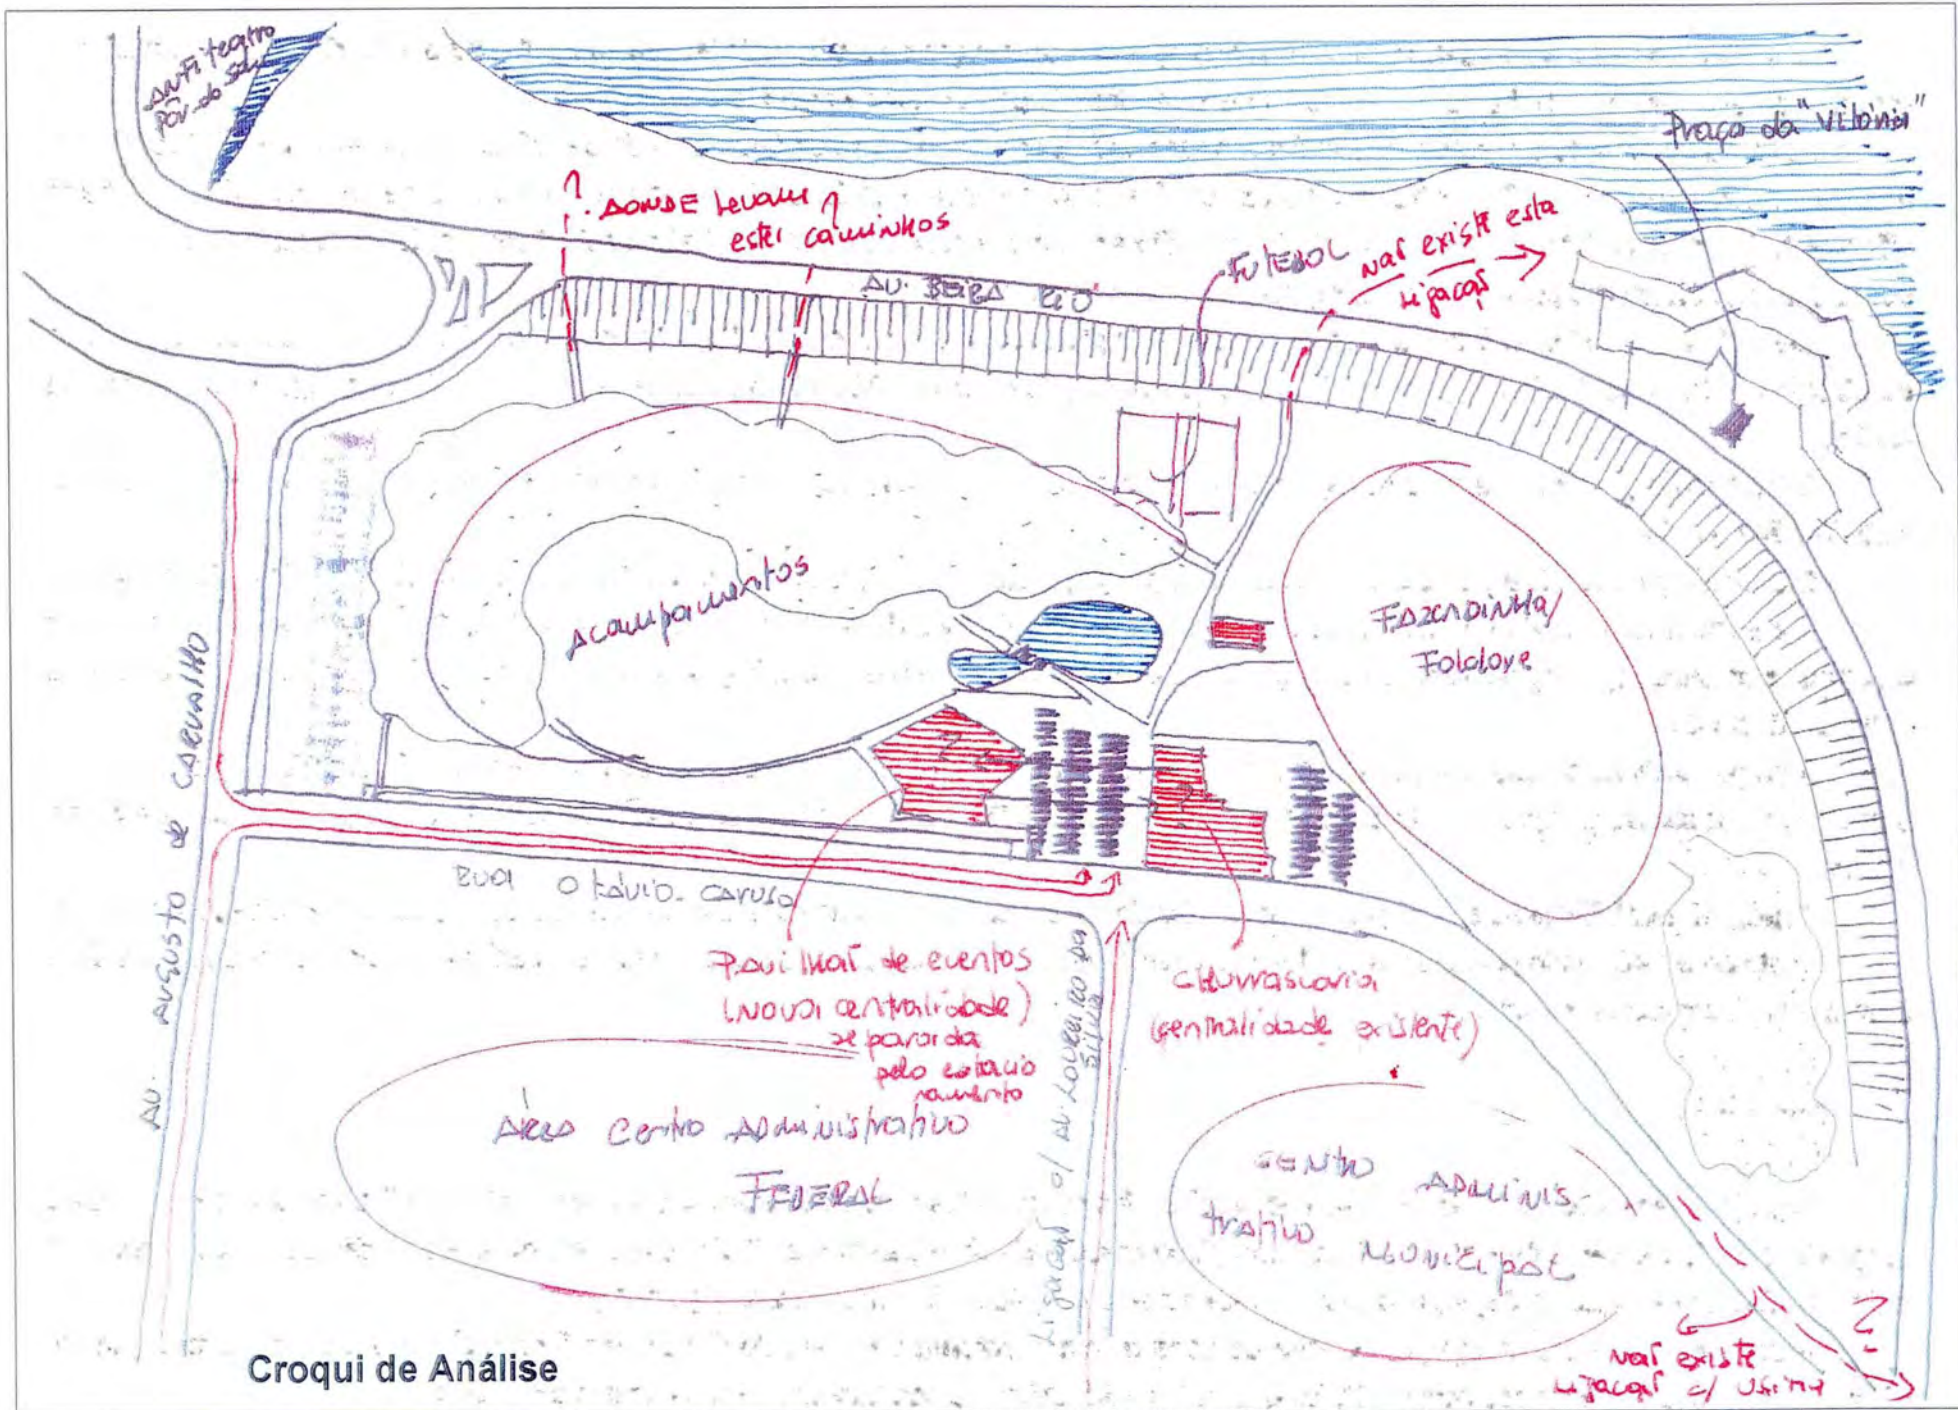 ANFiteatro
Pôr-do Sol
Praça da "Vitória"
? AONDE levam
estes caminhos ?
AV. BEIRA RIO
FUTEBOL
não existe esta
ligação
Acampamentos
FAZENDINHA/
Folclore
AV. AUGUSTO de CARVALHO
RUA Otávio. CARUSO
Pavilhão de eventos
(NOVA centralidade)
separada
pelo estacio
namento
Churrascaria
(centralidade existente)
Ligação c/ AV. LOUREIRO DA
SILVA
ÁREA Centro Administrativo
FEDERAL
CENTRO ADMINIS-
trativo MUNICIPAL
?
não existe
ligação c/ Usina
Croqui de Análise